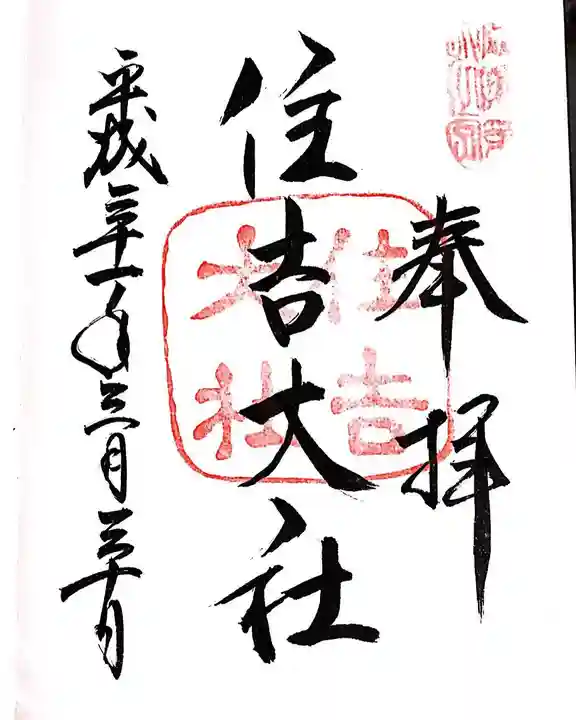 奉拝
住吉大社
住吉大社
平成三十一年三月三十日